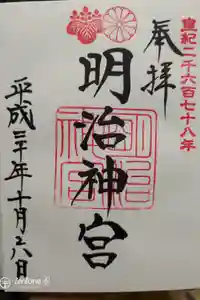 皇紀二千六百七十八年
奉拝
明治神宮
平成三十年十月六日